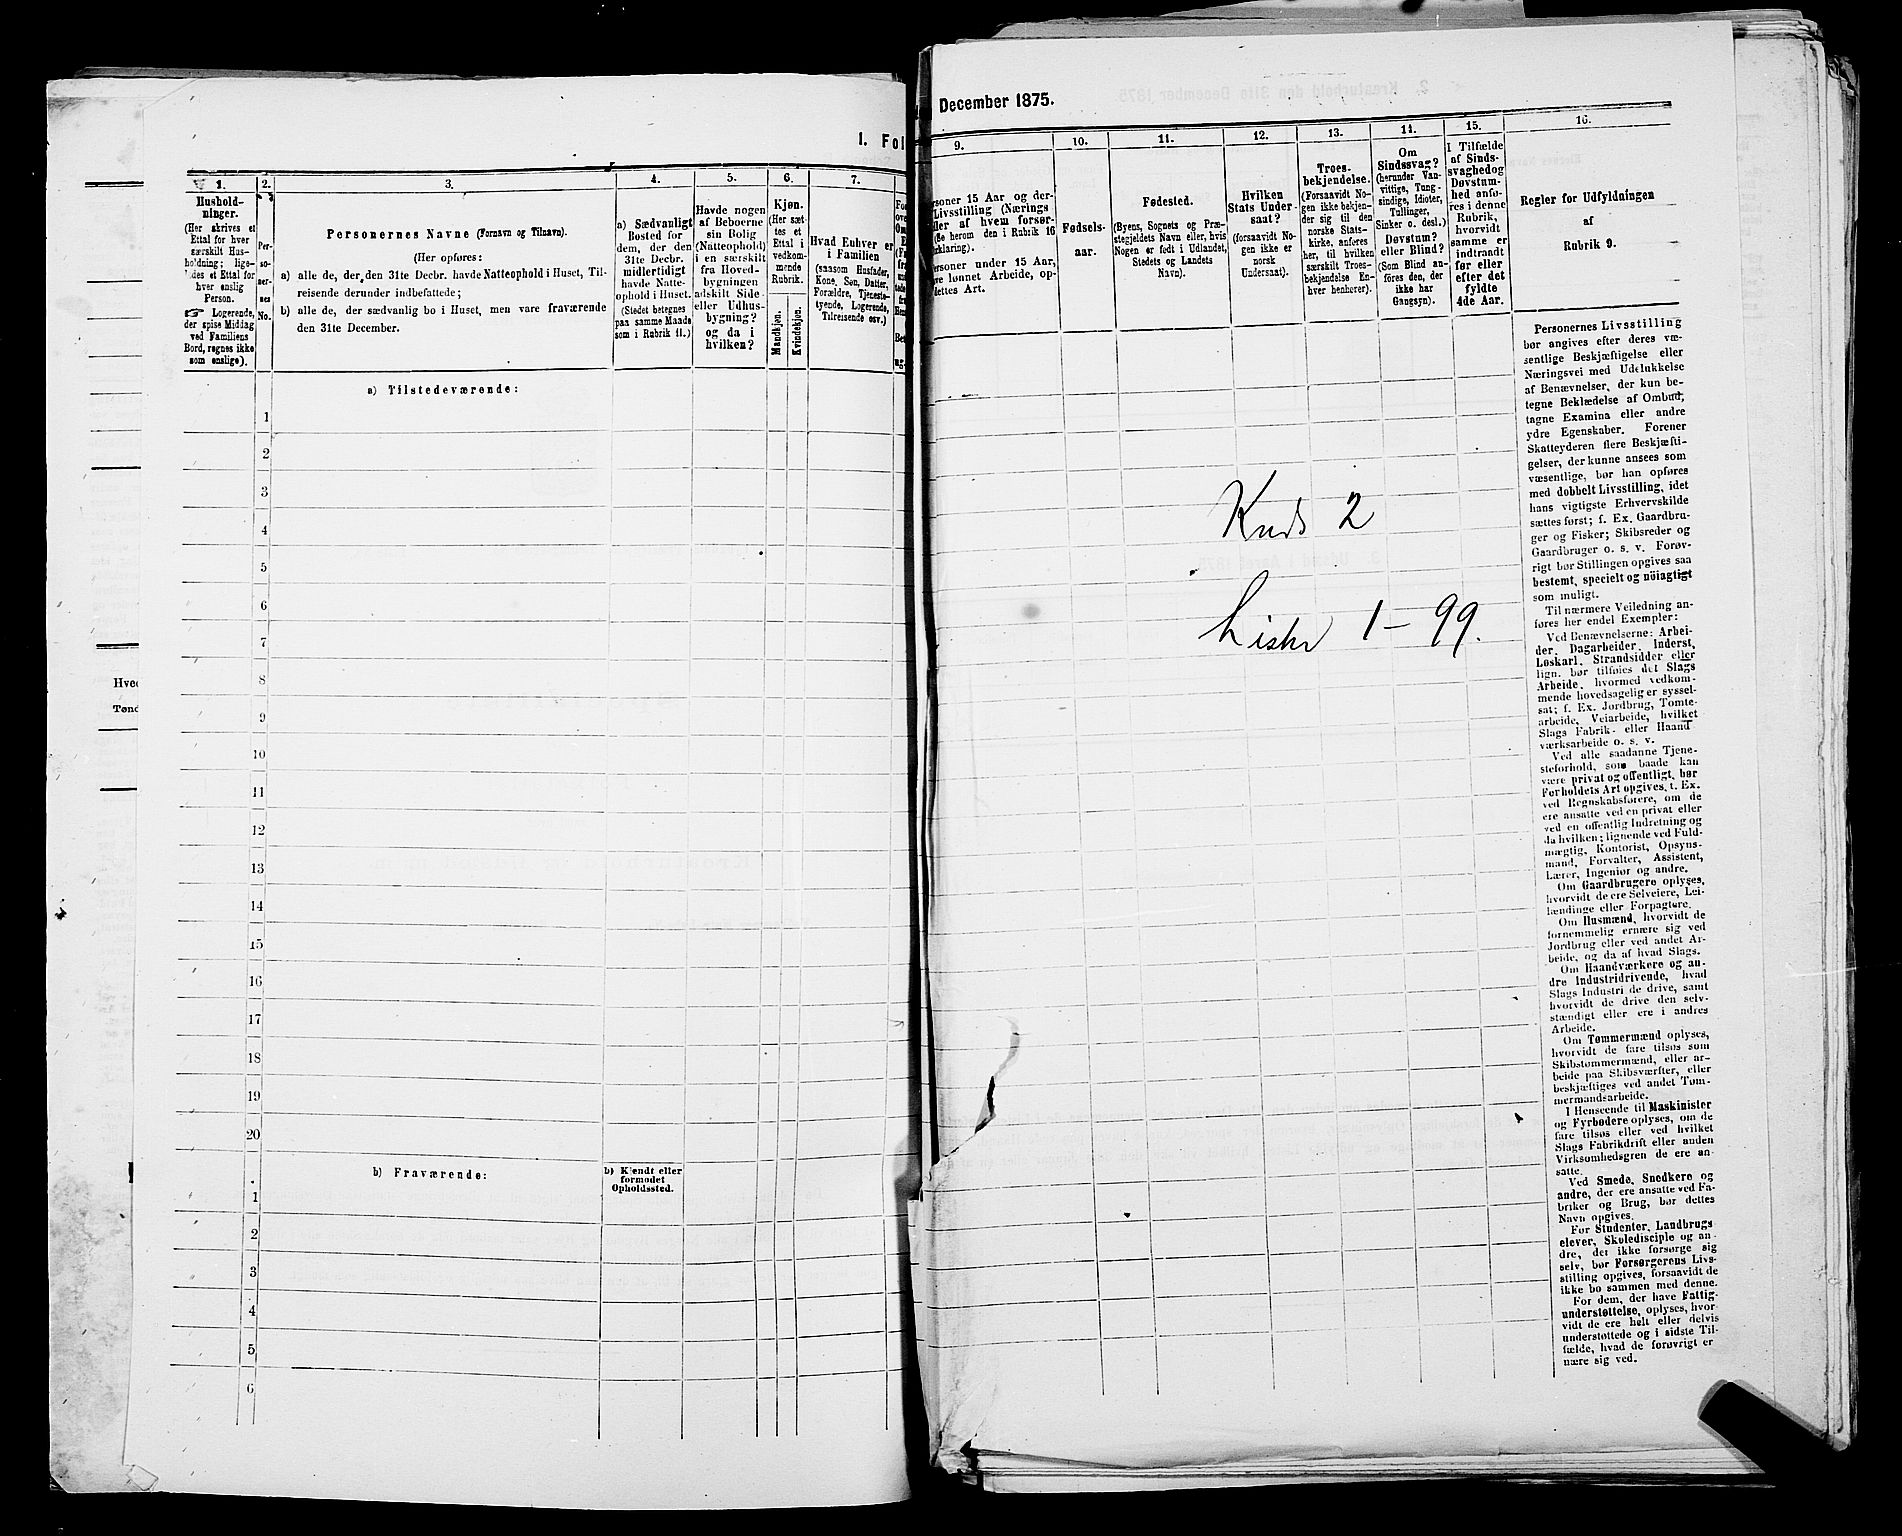 I. Fol
1.
2.
3.
4.
5.
6.
7.
Hushold-
ninger.
(Her skrives et
Ettal for hver
særskilt Hus-
holdning; lige-
ledes et Ettal for
hver enslig
Person.
☞ Logerende,
der spise Middag
ved Familiens
Bord, regnes ikke
som enslige).
Per-
so-
ner-
nes
No.
Personernes Navne (Fornavn og Tilnavn).
(Her opføres:
a) alle de, der den 31te Decbr. havde Natteophold i Huset, Til-
reisende derunder indbefattede;
b) alle de, der sædvanlig bo i Huset, men vare fraværende
den 31te December.
a) Sædvanligt
Bosted for
dem, der den
31te Decbr.
midlertidigt
havde Natte-
ophold i Huset.
(Stedet betegnes
paa samme Maade
som i Rubrik 11.)
Havde nogen
af Beboerne
sin Bolig
(Natteophold)
i en særskilt
fra Hoved-
bygningen
adskilt Side-
eller Udhus-
bygning?
og da i
hvilken?
Kjøn.
(Her sæt-
tes et
Ettal i
vedkom-
mende
Rubrik.
Mandkjøn.
Kvindekjøn.
Hvad Enhver er
i Familien
(saasom Husfader,
Kone, Søn, Datter,
Forældre, Tjeneste-
tyende, Logerende,
Tilreisende osv.)
a) Tilstedeværende:
1
2
3
4
5
6
7
8
9
10
11
12
13
14
15
16
17
18
19
20
b) Fraværende:
b) Kjendt eller
formodet
Opholdssted.
1
2
3
4
5
6
Hved
Tønd
December 1875.
9.
10.
11.
12.
13.
14.
15.
16.
ersoner 15 Aar og der-
Livsstilling (Nærings
ller af hvem forsør-
(Se herom den i Rubrik 16
rklaring).
ersoner under 15 Aar,
ve lønnet Arbeide, op-
dettes Art.
Fødsels-
aar.
Fødested.
(Byens, Sognets og Præ-
stegjeldets Navn eller, hvis
Nogen er født i Udlandet,
Stedets og Landets
Navn).
Hvilken
Stats Under-
saat?
(forsaavidt No-
gen ikke er
norsk
Undersaat).
Troes-
bekjendelse.
(Forsaavidt No-
gen ikke bekjen-
der sig til den
norske Stats-
kirke, anføres
her, til hvilken
særskilt Troes-
bekjendelse En-
hver henhører).
Om
Sindssvag?
(herunder Van-
vittige, Tung-
sindige, Idioter,
Tullinger,
Sinker o. desl.)
Døvstum?
eller Blind?
(Som Blind an-
føres den, der
ikke har
Gangsyn).
I Tilfælde
af Sinds-
svaghed og
Døvstum-
hed anfø-
res i denne
Rubrik,
hvorvidt
samme er
indtraadt
før eller
efter det
fyldte
4de Aar.
Regler for Udfyldningen
af
Rubrik 9.
Personernes Livsstilling
bør angives efter deres væ-
sentlige Beskjæftigelse eller
Næringsvei med Udelukkelse
af Benævnelser, der kun be-
tegne Beklædelse af Ombud,
tagne Examina eller andre
ydre Egenskaber. Forener
Skatteyderen flere Beskjæfti-
gelser, der kunne ansees som
væsentlige, bør han opføres
med dobbelt Livsstilling, idet
hans vigtigste Erhvervskilde
sættes først; f. Ex. Gaardbru-
ger og Fisker; Skibsreder og
Gaardbruger o. s. v. Forøv-
rigt bør Stillingen opgives saa
bestemt, specielt og nöiagtigt
som muligt.
Til nærmere Veiledning an-
føres her endel Exempler:
Ved Benævnelserne: Arbei-
der, Dagarbeider, Inderst,
Løskarl, Strandsidder eller
lign. bør tilføies det Slags
Arbeide, hvormed vedkom-
mende hovedsagelig er syssel-
sat; f. Ex. Jordbrug, Tomte-
arbeide, Veiarbeide, hvilket
Slags Fabrik- eller Haand
værksarbeide o. s. v.
Ved alle saadanne Tjene-
steforhold, som baade kan
være privat og offentligt, bør
Forholdets Art opgives, t. Ex.
ved Regnskabsførere, om de
ere ansatte ved en privat eller
ved en offentlig Indretning og
da hvilken; lignende ved Fuld-
mægtig, Kontorist, Opsyns-
mand, Forvalter, Assistent,
Lærer, Ingeniør og andre.
Om Gaardbrugere oplyses,
hvorvidt de ere Selveiere, Lei-
lændinge eller Forpagtere.
Om Husmænd, hvorvidt de
fornemmelig ernære sig ved
Jordbrug eller ved andet Ar-
beide, og da af hvad Slags.
Om Haandværkere og an-
dre Industridrivende, hvad
Slags Industri de drive, samt
hvorvidt de drive den selv-
stændigt eller ere i andres
Arbeide.
Om Tømmermænd oplyses,
hvorvidt de fare tilsøs som
Skibstømmermænd, eller ar-
beide paa Skibsværfter, eller
beskjæftiges ved andet Tøm-
mermandsarbeide.
I Henseende til Maskinister
og Fyrbødere oplyses, om de
fare tilsøs eller ved hvilket
Slags Fabrikdrift eller anden
Virksomhedsgren de ere an-
satte.
Ved Smede, Snedkere og
andre, der ere ansatte ved Fa-
briker og Brug, bør dettes
Navn opgives.
For Studenter, Landbrugs
elever, Skoledisciple og an-
dre, der ikke forsørge sig
selv, bør Forsørgerens Livs-
stilling opgives, forsaavidt de
ikke bo sammen med denne.
For dem, der have Fattig-
understøttelse, oplyses, hvor-
vidt de ere helt eller delvis
understøttede og i sidste Til-
fælde, hvad de forøvrigt er
nære sig ved.
Kreds 2
Lister 1 – 99.